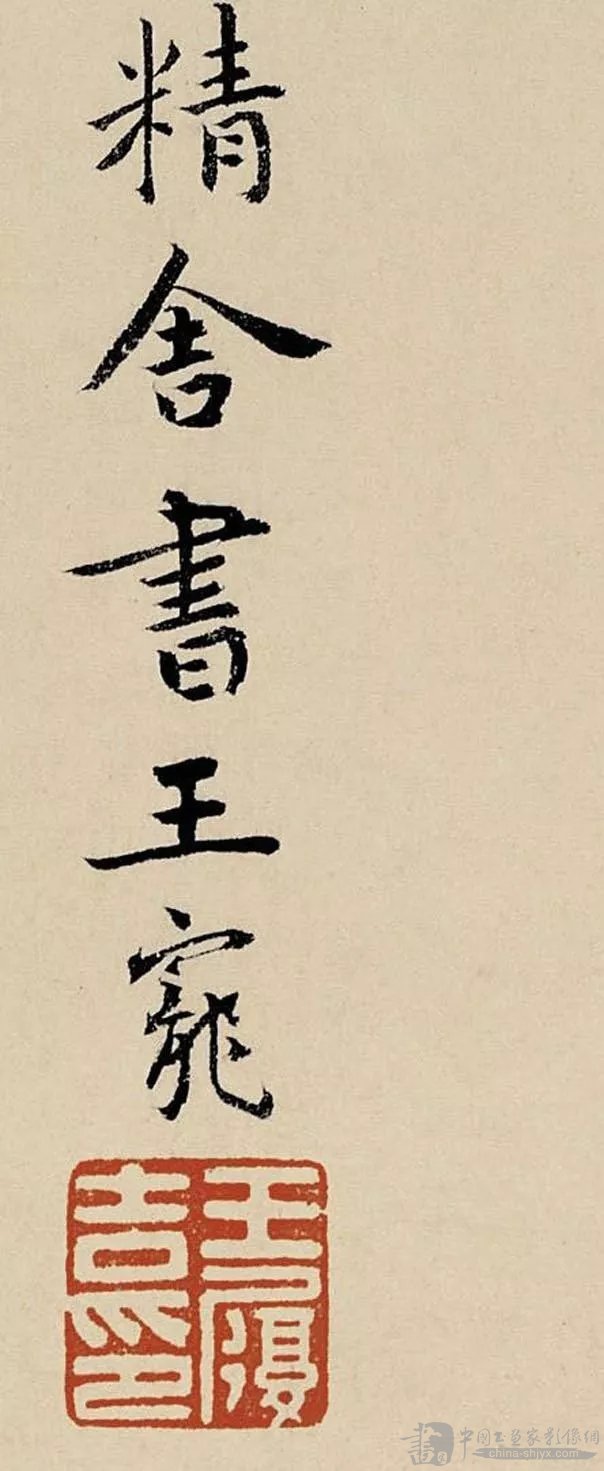 精舍書王寵
王履
吉印
中国书画家影像網
china-shjyx.com